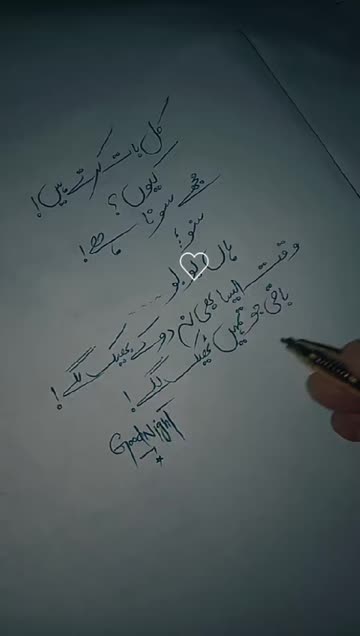 کل بات کرتے ہیں!
کیوں؟
مجھے سونا ہے!
سنو!
ہاں بولو
وقت ایسا بھی نہ دو کے بھیک لگے!
باقی جو تمہیں ٹھیک لگے!
Good Night